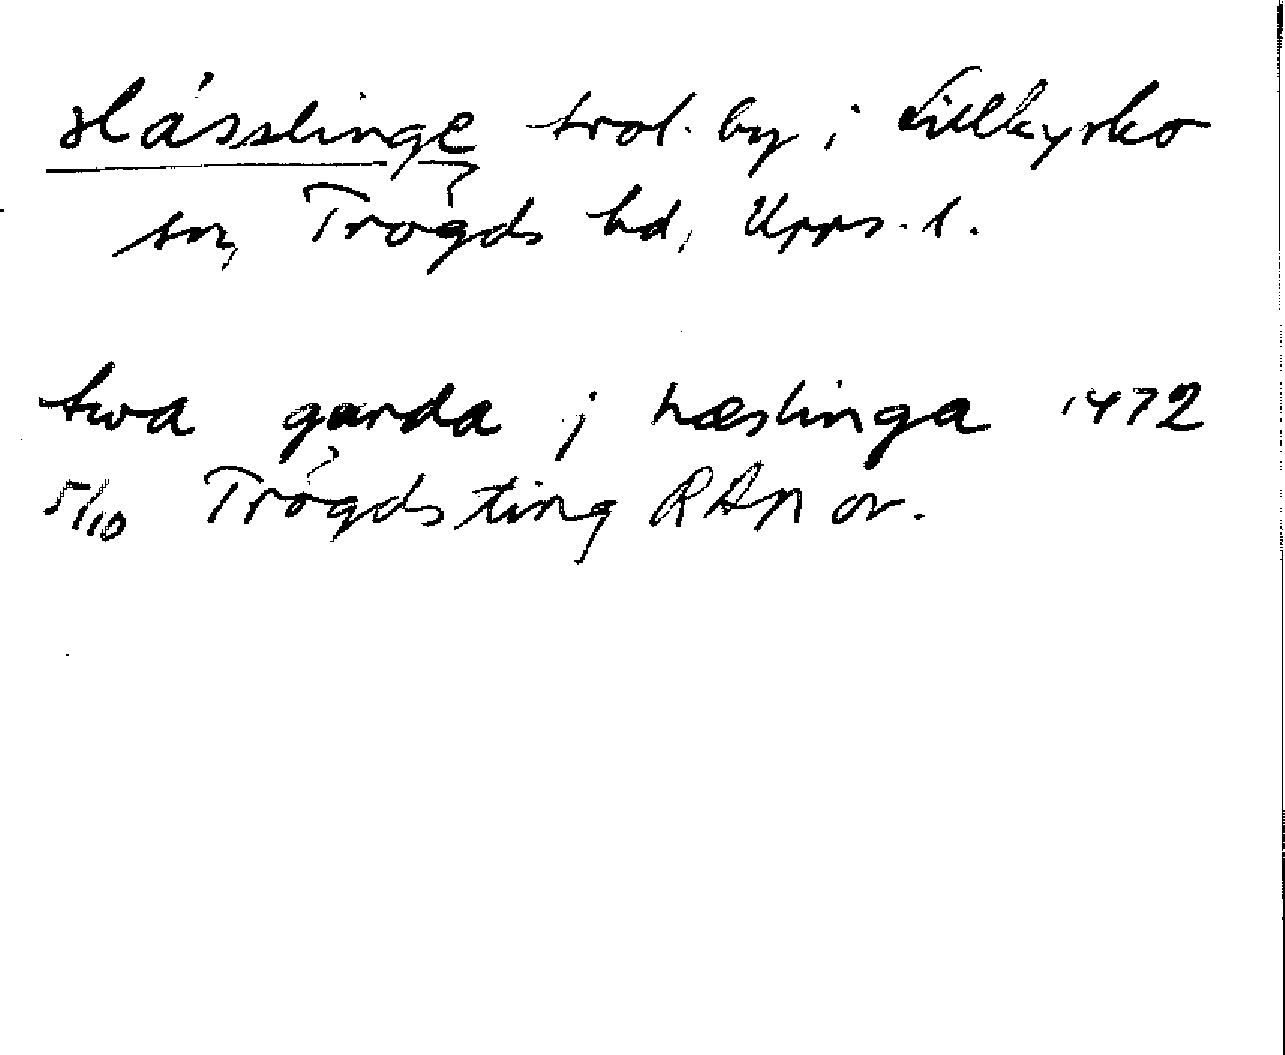 Hässlinge trol. by i Lillkyrko
sn, Trögds hd, Upps. l.
twa garda j hæslinga 1472
5/10 Trögds ting RAp or.